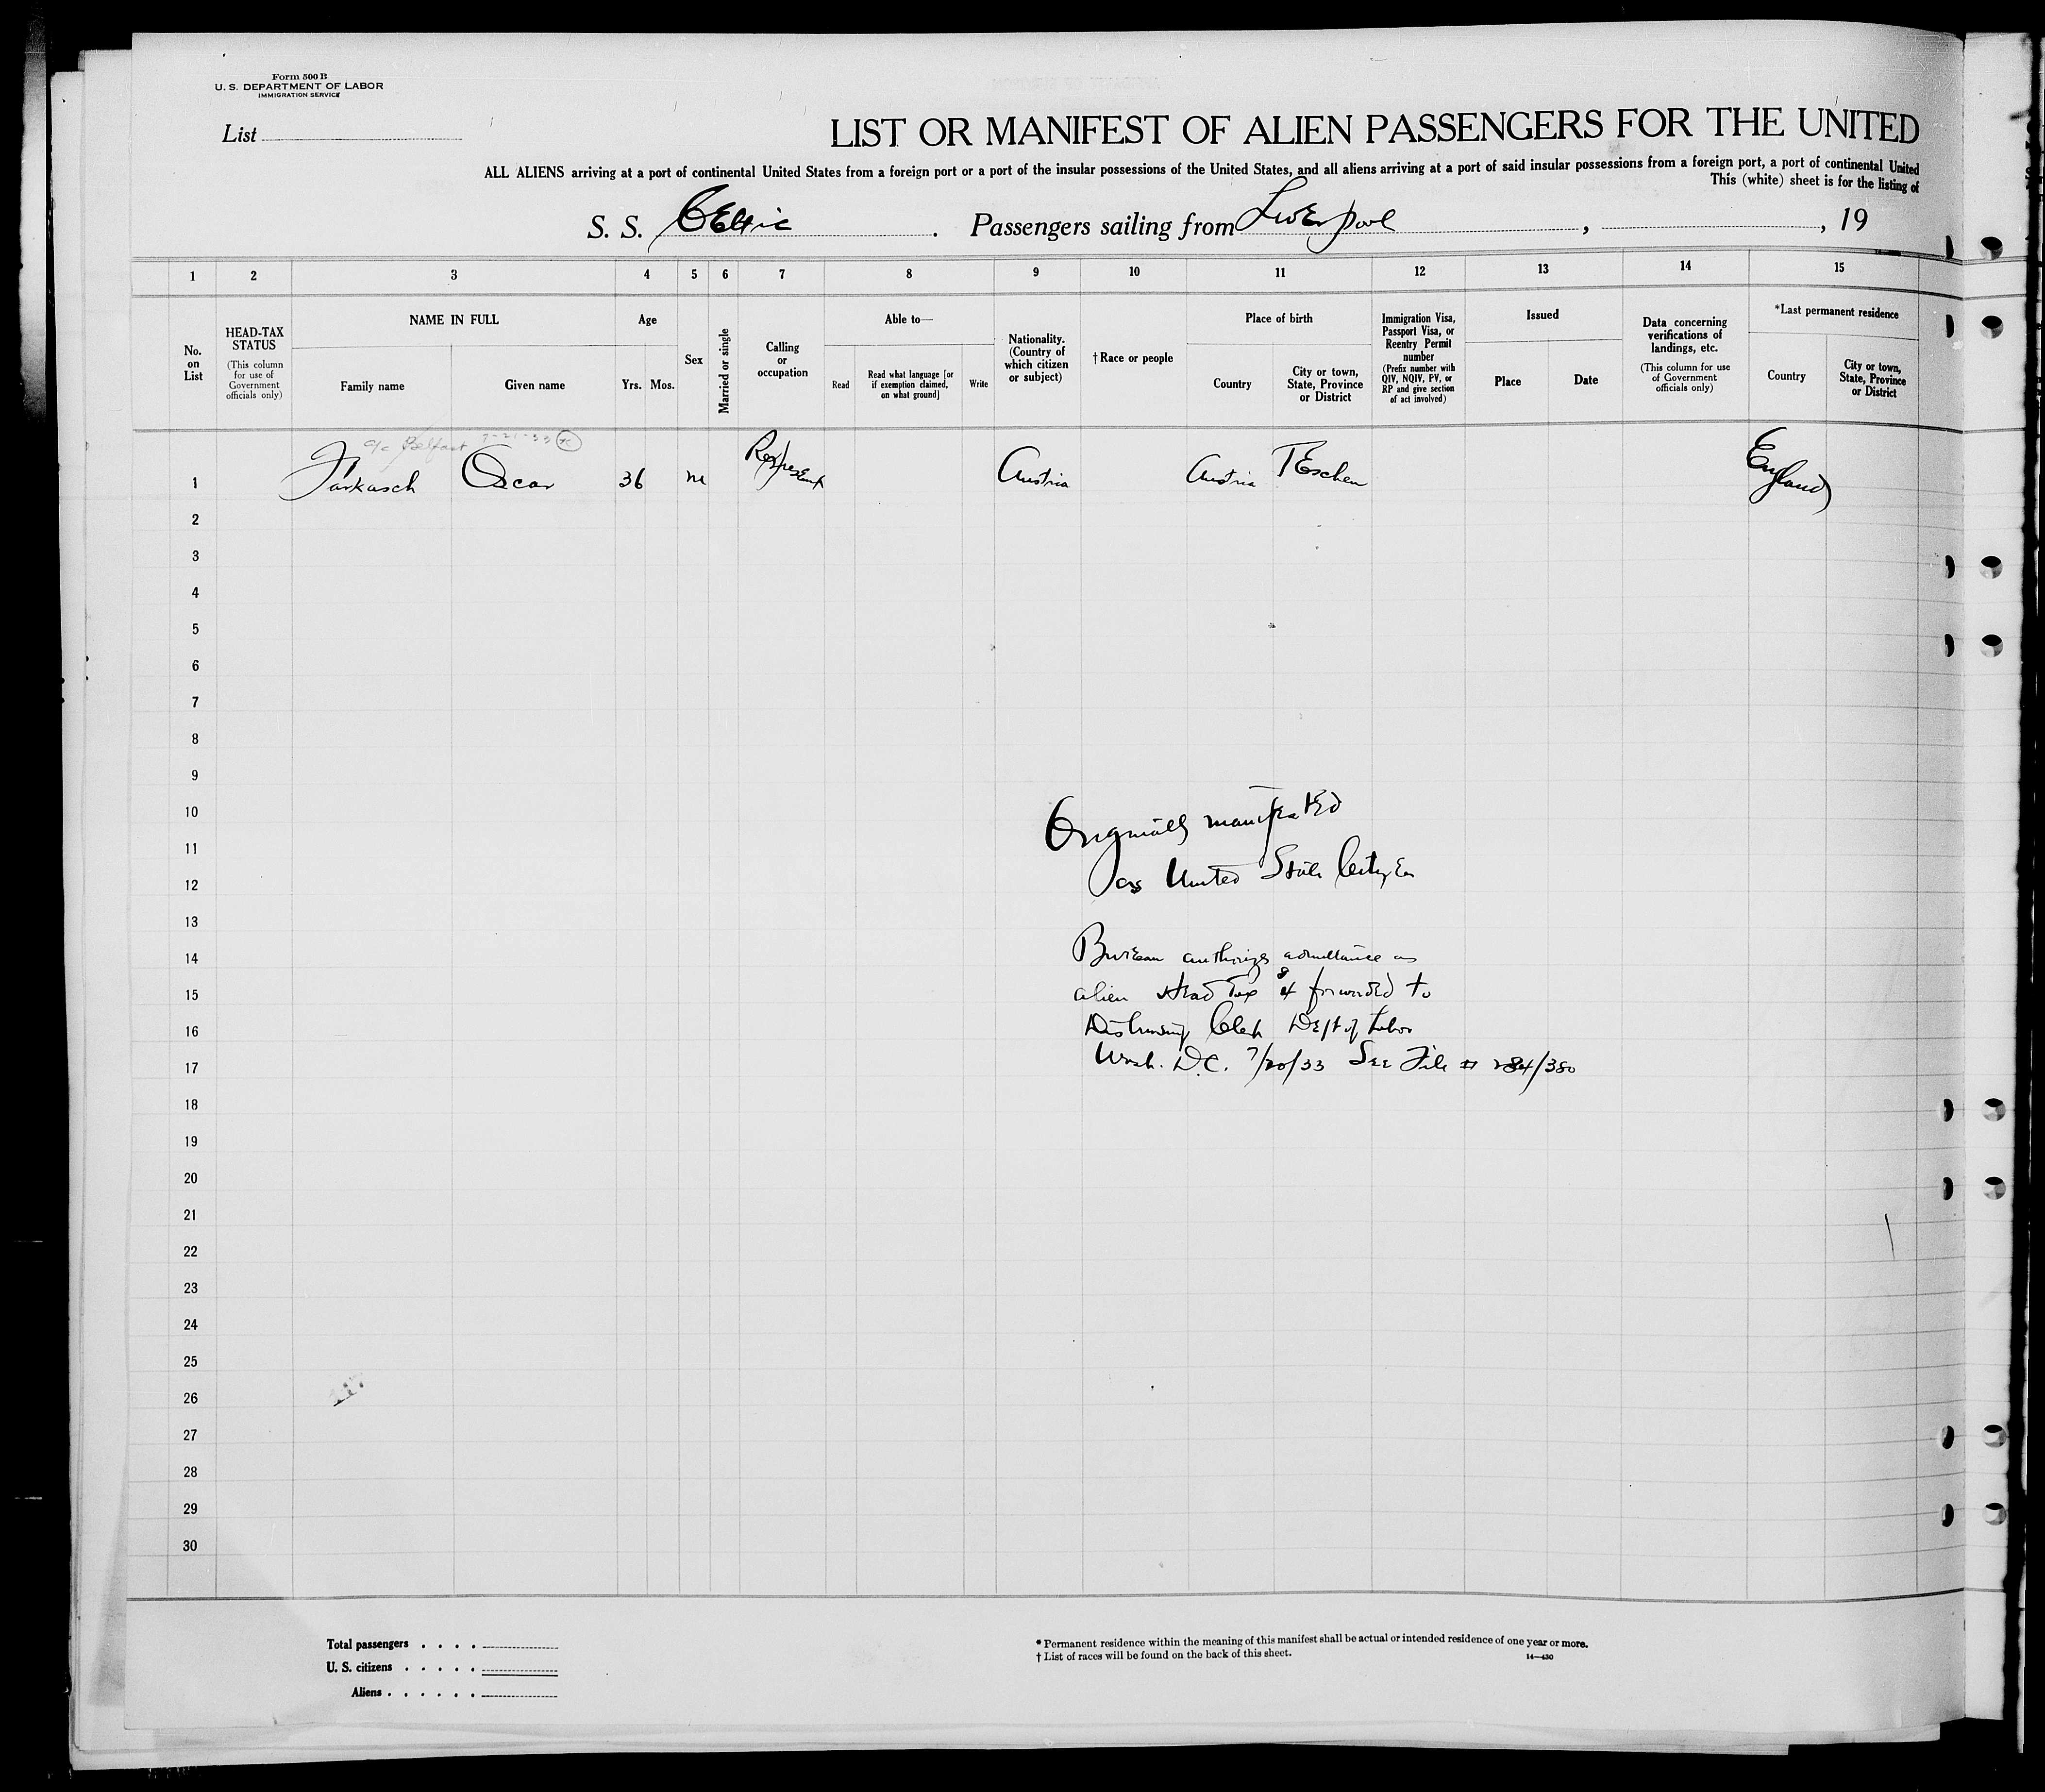 Form 500 B
U. S. DEPARTMENT OF LABOR
IMMIGRATION SERVICE
List
LIST OR MANIFEST OF ALIEN PASSENGERS FOR THE UNITED
ALL ALIENS arriving at a port of continental United States from a foreign port or a port of the insular possessions of the United States, and all aliens arriving at a port of said insular possessions from a foreign port, a port of continental United
This (white) sheet is for the listing of
S. S. Celtic . Passengers sailing from Liverpool , , 19
1 2 3 4 5 6 7 8 9 10 11 12 13 14 15
No. on List
HEAD-TAX STATUS
(This column for use of Government officials only)
NAME IN FULL
Family name
Given name
Age
Yrs. Mos.
Sex
Married or single
Calling or occupation
Able to—
Read
Read what language [or if exemption claimed, on what ground]
Write
Nationality. (Country of which citizen or subject)
† Race or people
Place of birth
Country
City or town, State, Province or District
Immigration Visa, Passport Visa, or Reentry Permit number
(Prefix number with QIV, NQIV, PV, or RP and give section of act involved)
Issued
Place
Date
Data concerning verifications of landings, etc.
(This column for use of Government officials only)
*Last permanent residence
Country
City or town, State, Province or District
c/c Belfast 7-21-33
1 Farkasch Oscar 36 m Represent Austria Austria Teschen England
2
3
4
5
6
7
8
9
10 Originally manifested
11
12 as United State Citizen
13
14 Bureau authorizes admittance as
15 alien Head Tax $8 forwarded to
16 Disbursing Clerk Dept of Labor
17 Wash. D.C. 7/20/33 See File # 284/380
18
19
20
21
22
23
24
25
26
27
28
29
30
Total passengers . . . .
U. S. citizens . . . . .
Aliens . . . . . .
* Permanent residence within the meaning of this manifest shall be actual or intended residence of one year or more.
† List of races will be found on the back of this sheet.
14—430